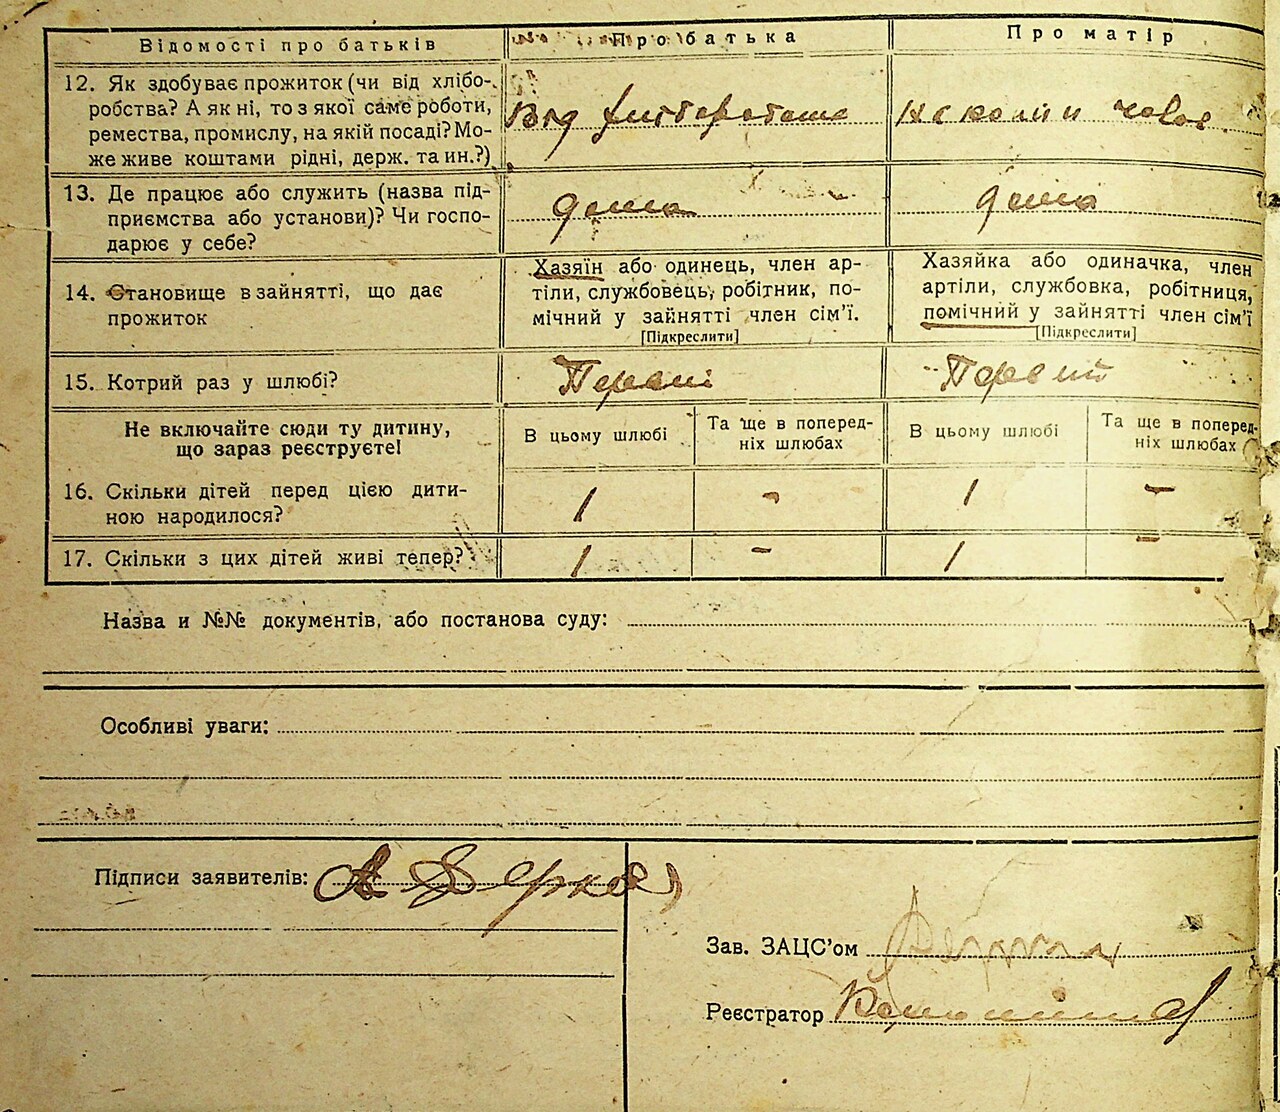 Відомості про батьків
Про батька
Про матір
12. Як здобуває прожиток (чи від хлібо-
робства? А як ні, то з якої саме роботи,
ремества, промислу, на якій посаді? Мо-
же живе коштами рідні, держ. та ин.?)
Від
13. Де працює або служить (назва під-
приємства або установи)? Чи госпо-
дарює у себе?
дома
дома
14. Становище в зайнятті, що дає
прожиток
Хазяїн або одинець, член ар-
тіли, службовець, робітник, по-
мічний у зайнятті член сім'ї.
[Підкреслити]
Хазяйка або одиначка, член
артіли, службовка, робітниця,
помічний у зайнятті член сім'ї
[Підкреслити]
15. Котрий раз у шлюбі?
Первий
Первий
Не включайте сюди ту дитину,
що зараз реєструєте!
В цьому шлюбі
Та ще в поперед-
ніх шлюбах
В цьому шлюбі
Та ще в поперед-
ніх шлюбах
16. Скільки дітей перед цією дити-
ною народилося?
1 - 1 -
17. Скільки з цих дітей живі тепер?
1 - 1 -
Назва и №№ документів, або постанова суду:
Особливі уваги:
Підписи заявителів: А Деркач
Зав. ЗАЦС'ом
Реєстратор